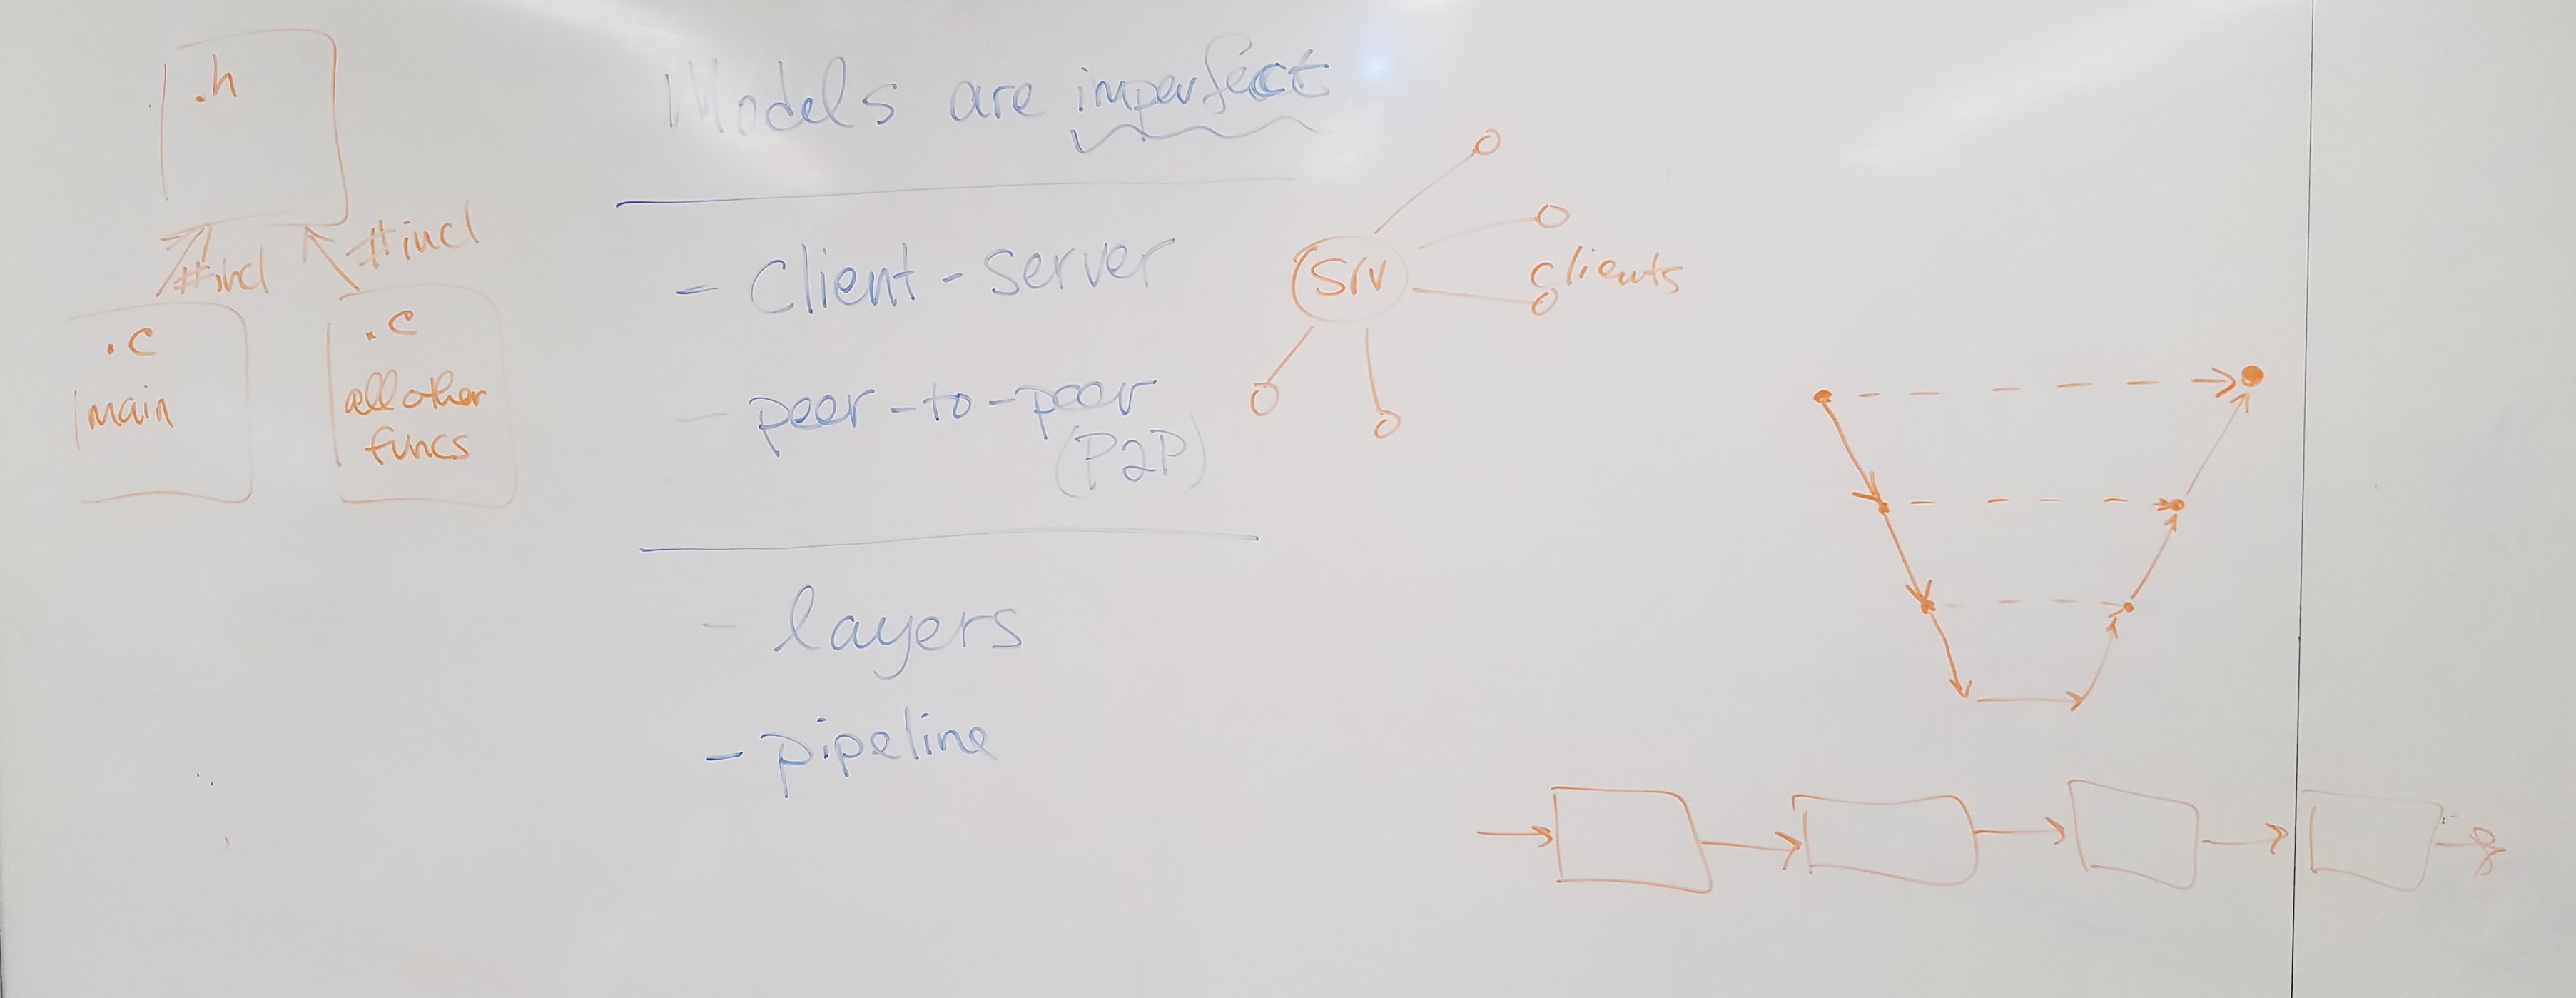 .h
#incl
#incl
.c
main
.c
all other
funcs
Models are imperfect
- Client-server
- peer-to-peer
(P2P)
- layers
- pipeline
Srv
clients